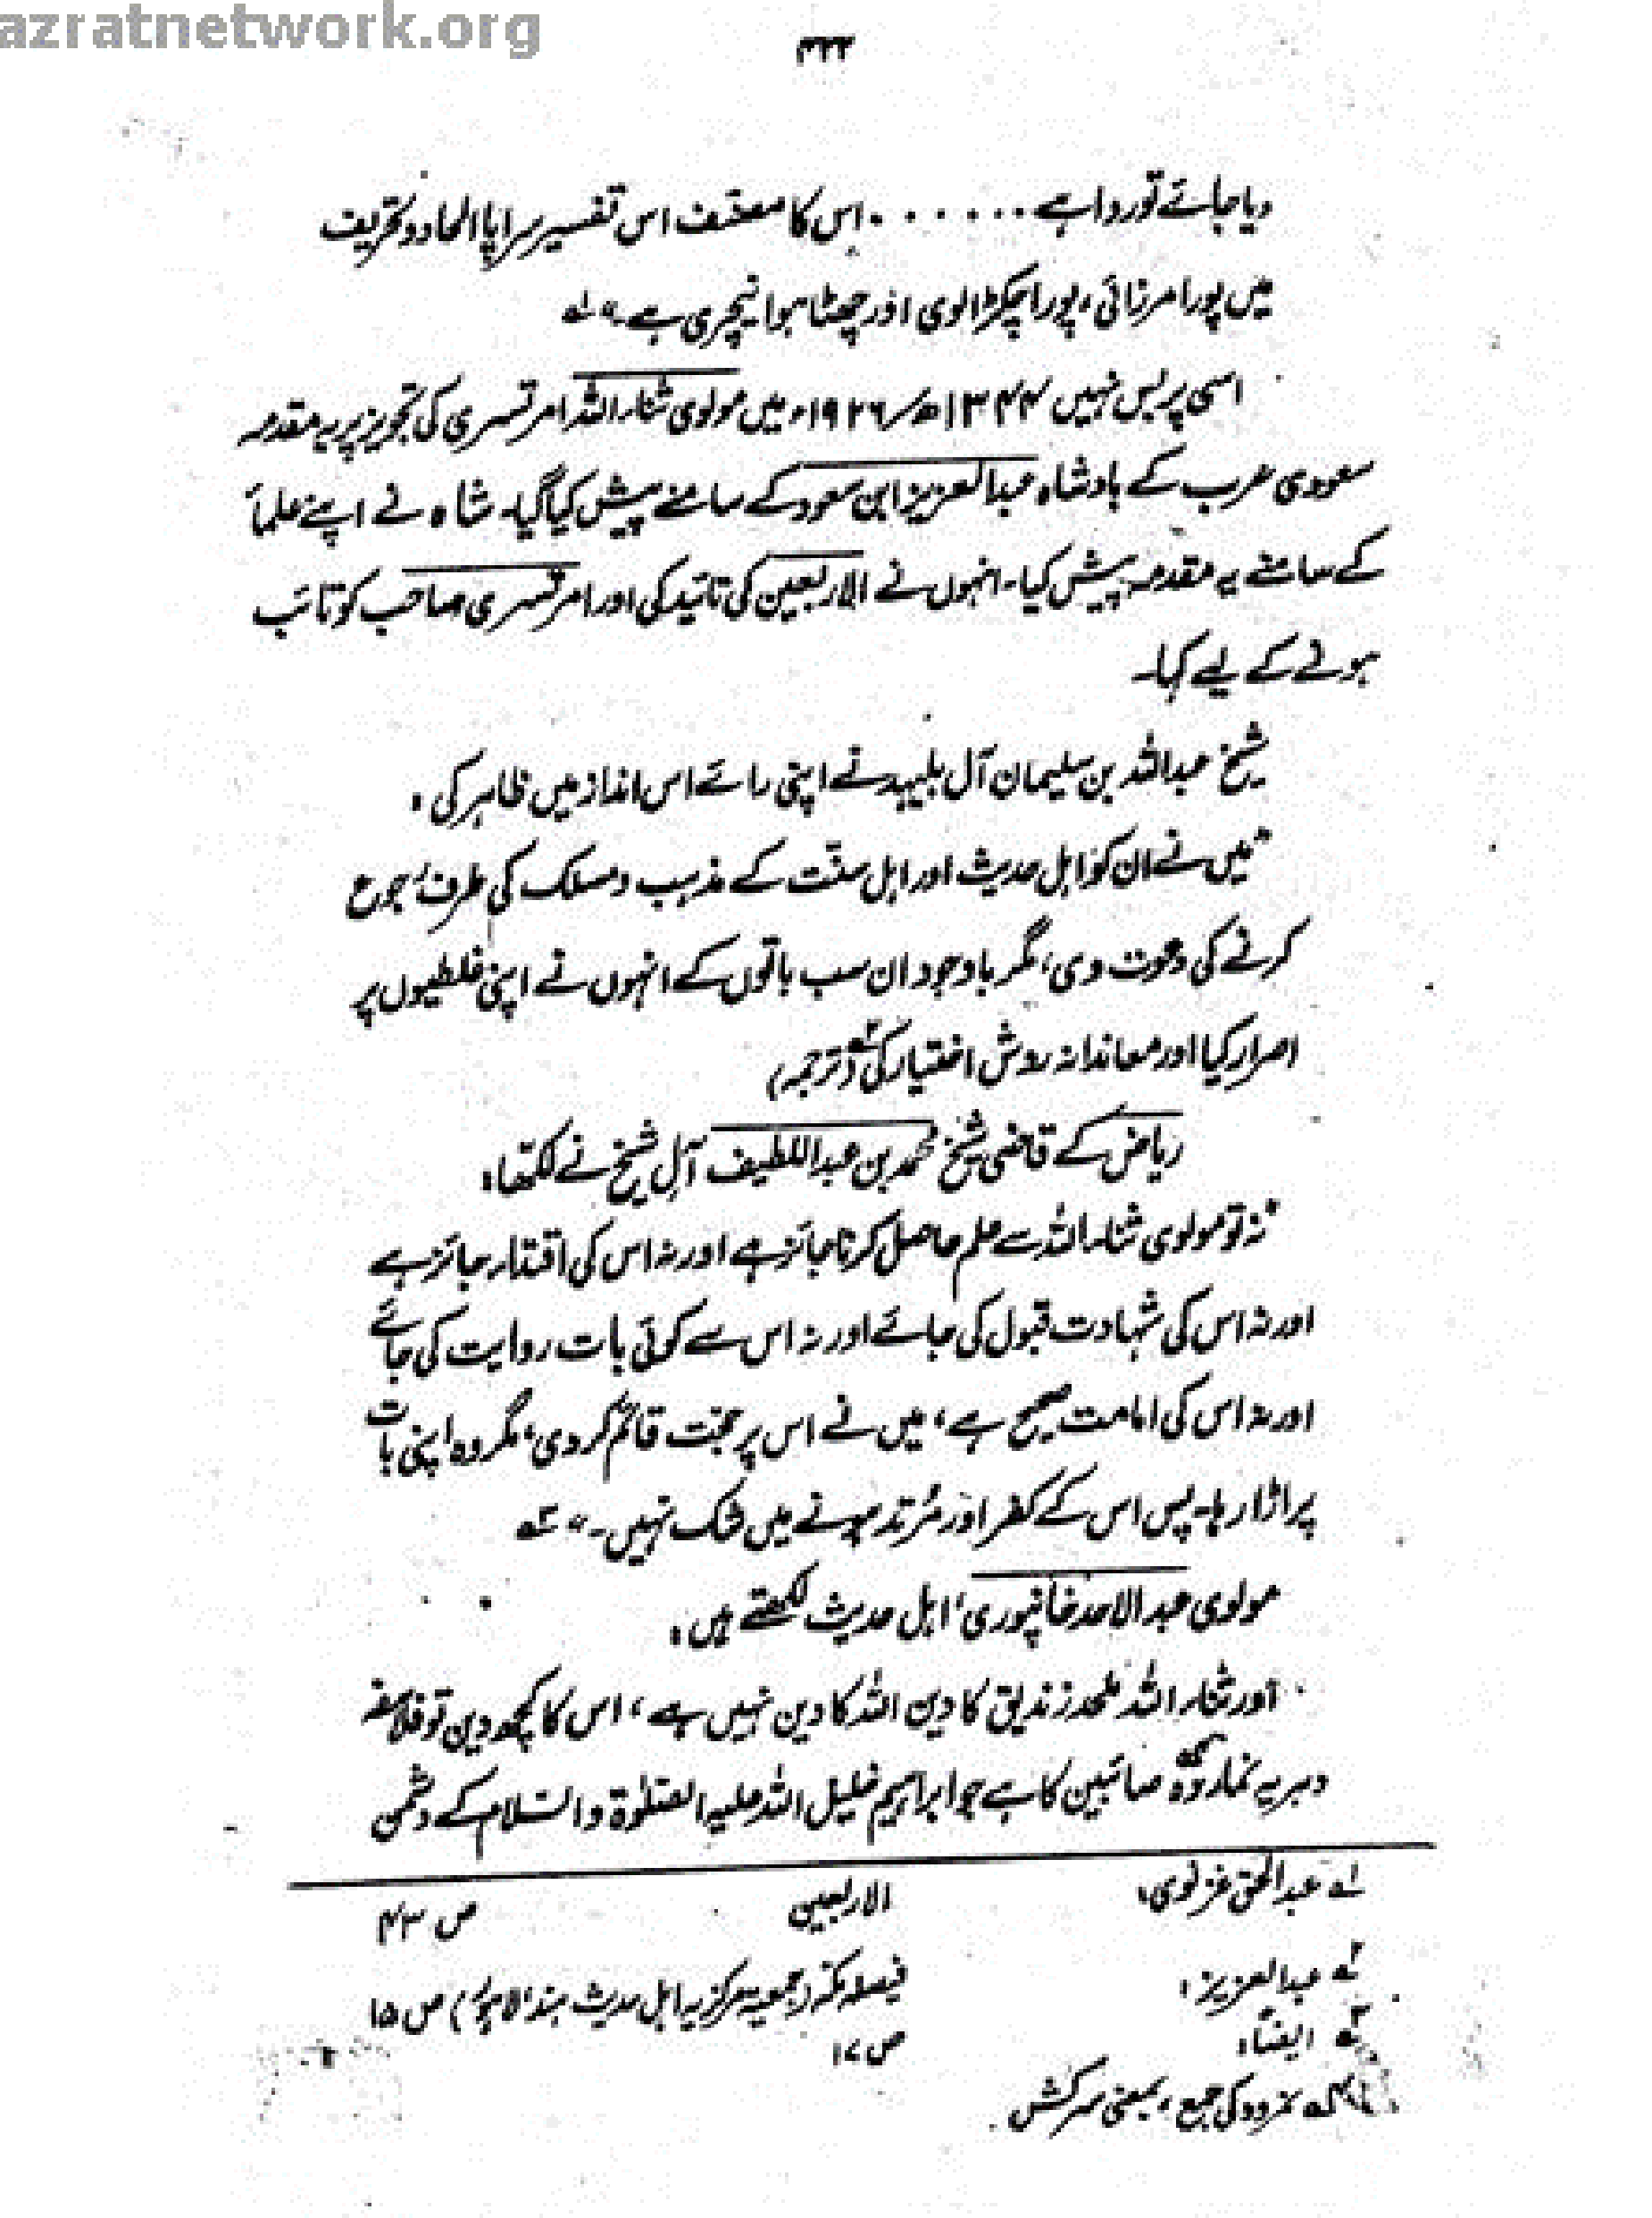 azratnetwork.org
۳۲۲
دیا جائے تو روا ہے ۰۰۰۰۰۰ اس کا مصنّف اس تفسیر سراپا الحاد و تحریف
میں پورا مرزائی، پورا چکڑالوی اور چھٹا ہوا نیچری ہے۔" لہ
اسی پر بس نہیں ۱۳۴۴ھ/۱۹۲۶ء میں مولوی ثناء اللہ امرتسری کی تجویز پر یہ مقدمہ
سعودی عرب کے بادشاہ عبدالعزیز ابن سعود کے سامنے پیش کیا گیا۔ شاہ نے اپنے علمأ
کے سامنے یہ مقدمہ پیش کیا۔ انہوں نے الاربعین کی تائید کی اور امرتسری صاحب کو تائب
ہونے کے لیے کہا۔
شیخ عبداللہ بن سلیمان آل بلیہد نے اپنی رائے اس انداز میں ظاہر کی:
"میں نے ان کو اہل حدیث اور اہل سنّت کے مذہب و مسلک کی طرف رُجوع
کرنے کی دعوت دی، مگر باوجود ان سب باتوں کے انہوں نے اپنی غلطیوں پر
اصرار کیا اور معاندانہ روش اختیار کی"۲ (ترجمہ)
ریاض کے قاضی شیخ محمد بن عبداللطیف آلِ شیخ نے لکھا:
"نہ تو مولوی ثناء اللہ سے علم حاصل کرنا جائز ہے اور نہ اس کی اقتداء جائز ہے
اور نہ اس کی شہادت قبول کی جائے اور نہ اس سے کوئی بات روایت کی جائے
اور نہ اس کی امامت صحیح ہے، میں نے اس پر حجّت قائم کر دی، مگر وہ اپنی بات
پر اڑا رہا۔ پس اس کے کفر اور مُرتد ہونے میں شک نہیں۔" ۳
مولوی عبدالاحد خانپوری، اہل حدیث لکھتے ہیں:
"اور ثناء اللہ ملحد زندیق کا دین اللہ کا دین نہیں ہے، اس کا کچھ دین تو فلاسفہ
دہریہ نماردہ۴ صائبین کا ہے جو ابراہیم خلیل اللہ علیہ الصّلوٰۃ والسّلام کے دشمن
لہ عبدالحق غزنوی، الاربعین ص ۴۳
۲ عبدالعزیز: فیصلہ مکّہ (جمعیۃ مرکزیہ اہل حدیث ہند، لاہور) ص ۱۵
۳ ایضاً: ص ۱۷
۴ نمرود کی جمع، بمعنی سرکش